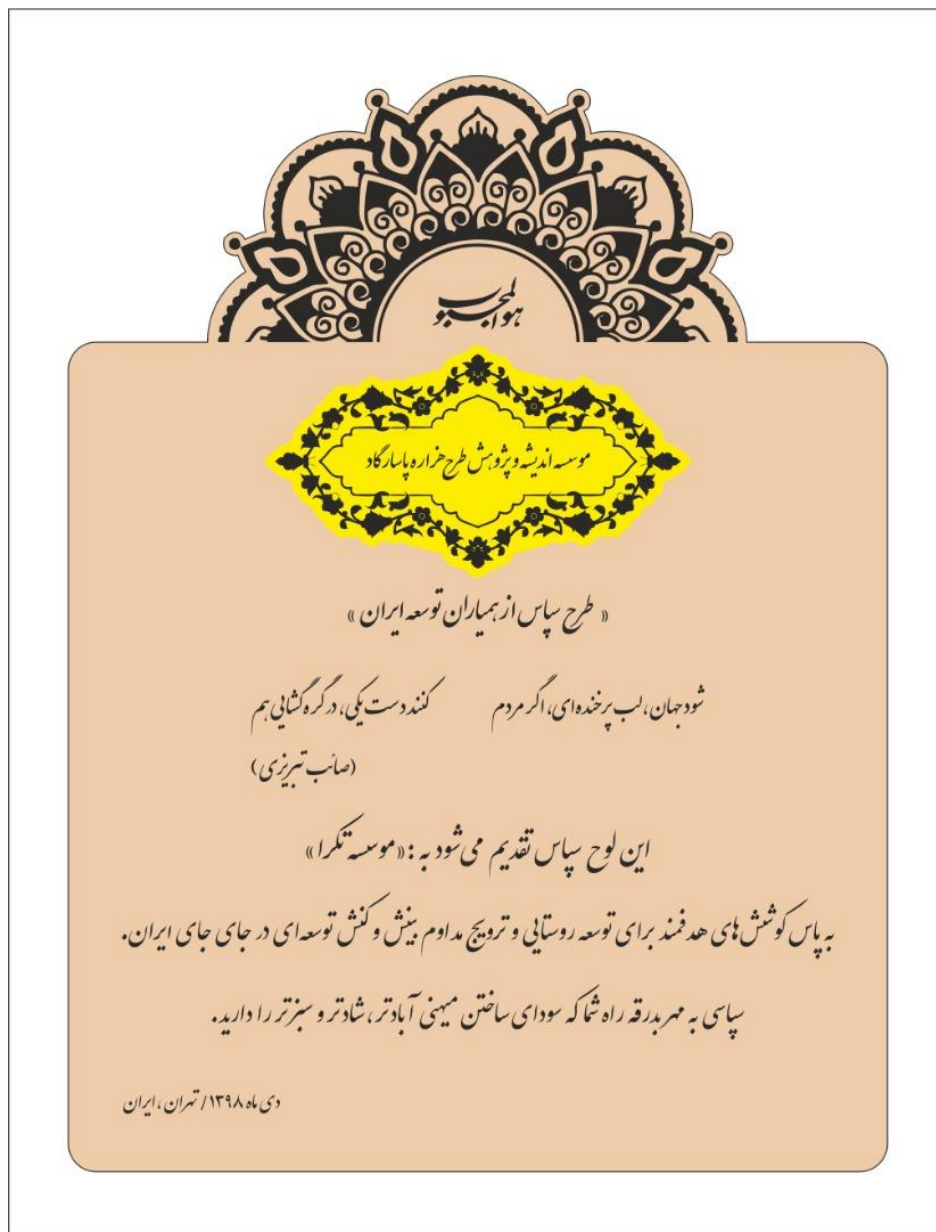 هوالمحبوب
موسسه اندیشه و پژوهش طرح هزاره پاسارگاد
« طرح سپاس از همیاران توسعه ایران »
شود جهان، لب پرخنده‌ای، اگر مردم کنند دست یکی، در گره گشایی هم
(صائب تبریزی)
این لوح سپاس تقدیم می‌شود به : «موسسه تکرا»
به پاس کوشش‌های هدفمند برای توسعه روستایی و ترویج مداوم بینش و کنش توسعه‌ای در جای جای ایران.
سپاسی به مهر بدرقه راه شما که سودای ساختن میهنی آبادتر، شادتر و سبزتر را دارید.
دی ماه ۱۳۹۸/ تهران، ایران